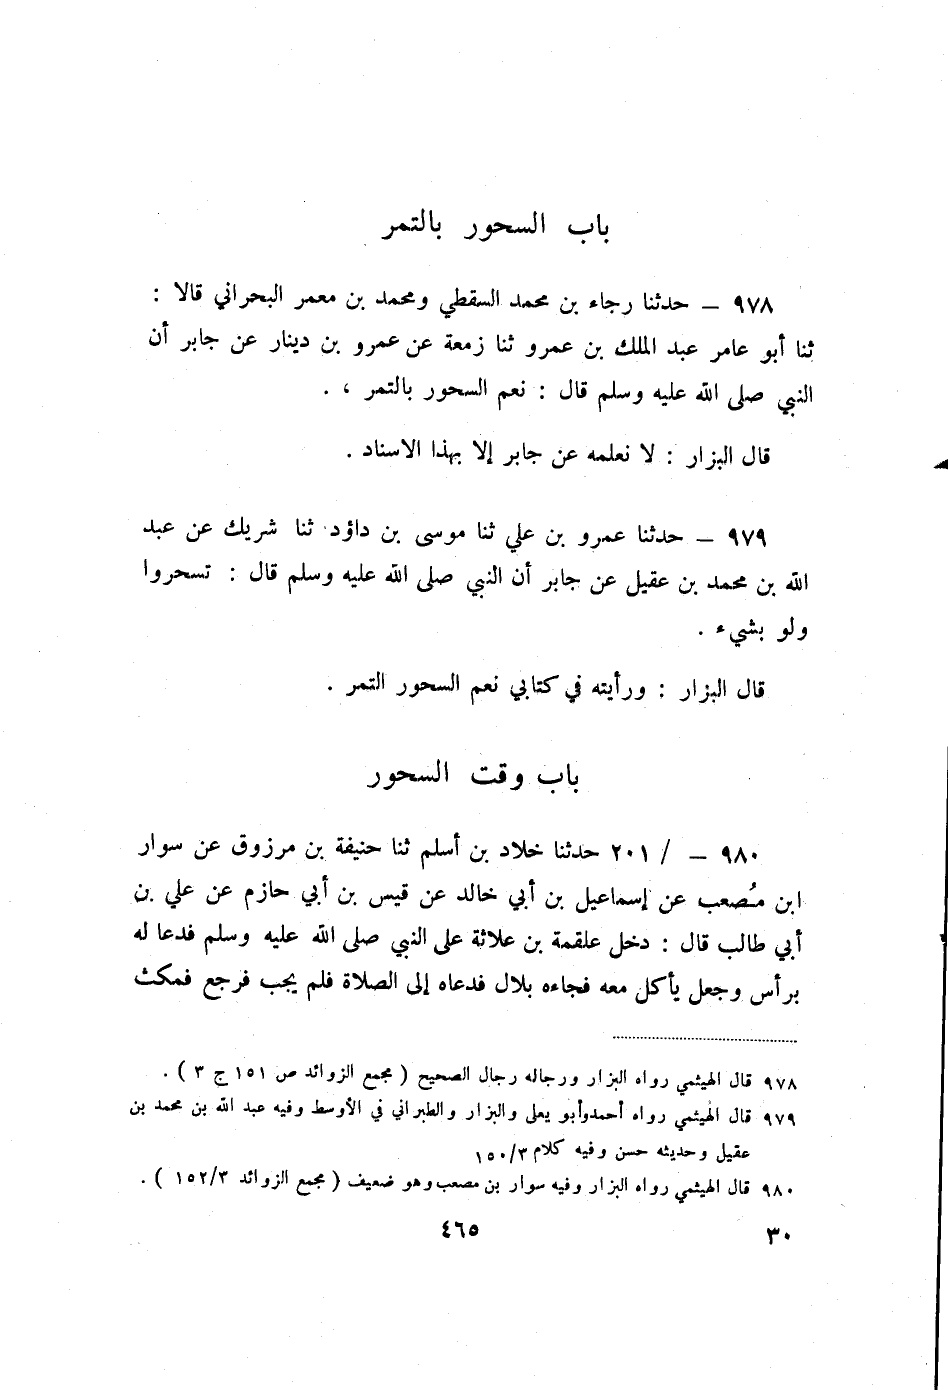 باب السحور بالتمر
٩٧٨ – حدثنا رجاء بن محمد السقطي ومحمد بن معمر البحراني قالا :
ثنا أبو عامر عبد الملك بن عمرو ثنا زمعة عن عمرو بن دينار عن جابر أن
النبي صلى الله عليه وسلم قال : نعم السحور بالتمر ، .
قال البزار : لا نعلمه عن جابر إلا بهذا الاسناد .
٩٧٩ – حدثنا عمرو بن علي ثنا موسى بن داؤد ثنا شريك عن عبد
الله بن محمد بن عقيل عن جابر أن النبي صلى الله عليه وسلم قال : تسحروا
ولو بشيء .
قال البزار : ورأيته في كتابي نعم السحور التمر .
باب وقت السحور
٩٨٠ – / ٢٠١ حدثنا خلاد بن أسلم ثنا حنيفة بن مرزوق عن سوار
ابن مُصعب عن إسماعيل بن أبي خالد عن قيس بن أبي حازم عن علي بن
أبي طالب قال : دخل علقمة بن علاثة على النبي صلى الله عليه وسلم فدعا له
برأس وجعل يأكل معه فجاءه بلال فدعاه إلى الصلاة فلم يجب فرجع فمكث
٩٧٨ قال الهيثمي رواه البزار ورجاله رجال الصحيح ( مجمع الزوائد ص ١٥١ ج ٣ ) .
٩٧٩ قال الهيثمي رواه أحمدوأبو يعلى والبزار والطبراني في الأوسط وفيه عبد الله بن محمد بن
عقيل وحديثه حسن وفيه كلام ١٥٠/٣
٩٨٠ قال الهيثمي رواه البزار وفيه سوار بن مصعب وهو ضعيف ( مجمع الزوائد ١٥٢/٣ ) .
٣٠ ٤٦٥